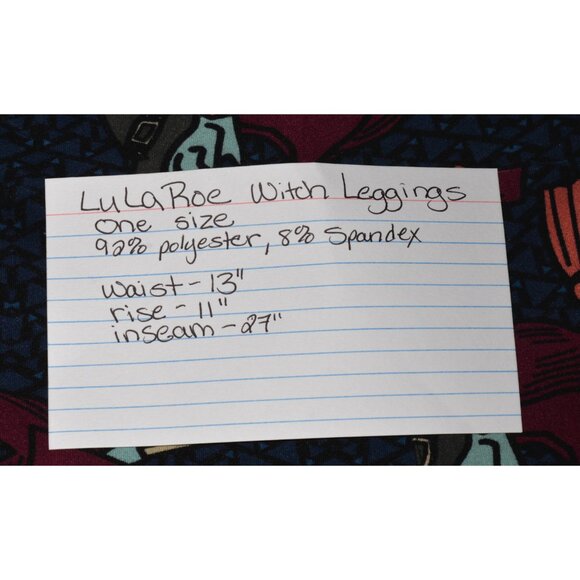 LuLaRoe Witch Leggings
one size
92% polyester, 8% Spandex
waist - 13"
rise - 11"
inseam - 27"